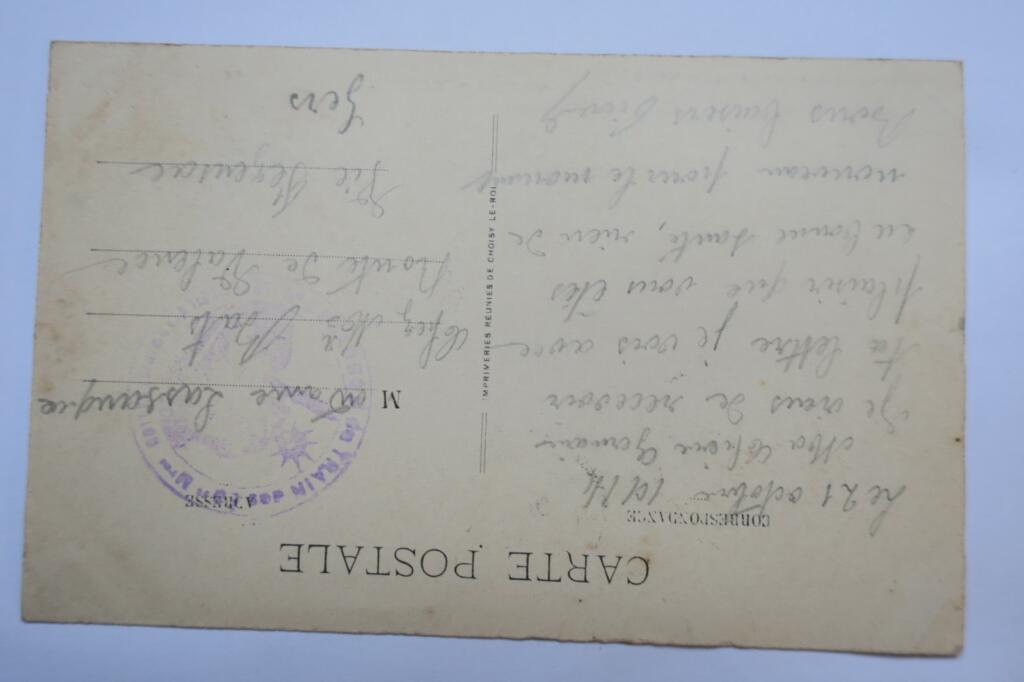 CARTE POSTALE
CORRESPONDANCE
Le 21 octobre 1914
Ma chère Germaine
Je viens de recevoir
ta lettre je vois avec
plaisir que vous êtes
en bonne santé, rien de
nouveau pour le moment
Bons baisers
IMPRIMERIES RÉUNIES DE CHOISY-LE-ROI
ADRESSE
Madame Lassangue
chez Mr
Route de Valence
Vic Fezensac
Gers
TRAIN des